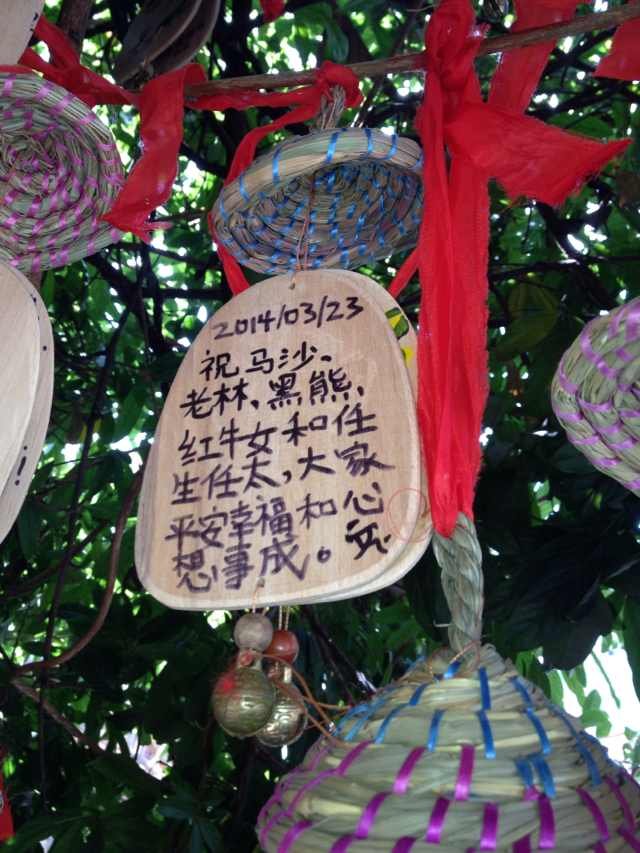 2014/03/23
祝马沙、
老林、黑熊、
红牛女和任
生任太,大家
平安幸福和心
想事成。